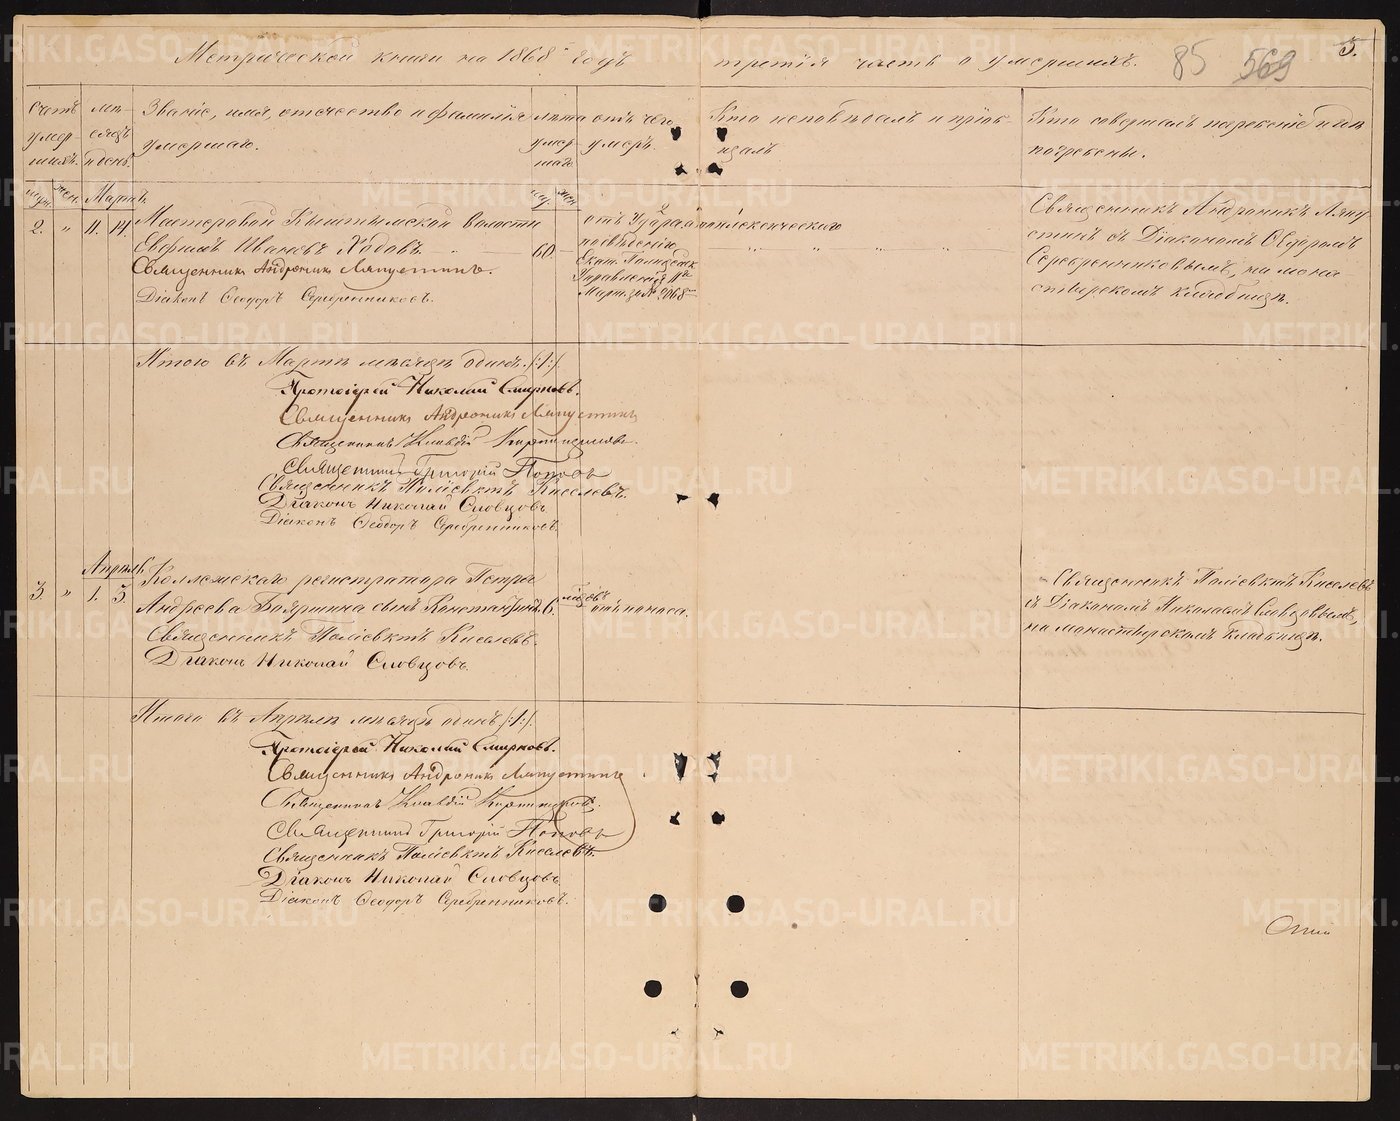 Метрической книги на 1868 годъ
третія часть о умершихъ.
85 569
5.
Счетъ умершихъ.
мѣсяцъ и день.
Званіе, имя, отчество и фамилія умершаго.
лѣта умершаго.
отъ чего умеръ.
Кто исповѣдалъ и пріобщалъ
Кто совершалъ погребеніе и гдѣ погребены.
муж. жен. Мартъ. муж. жен.
2. " 11. 14. Мастеровой Кыштымской волости
Евфимъ Ивановъ 60.
Священникъ Андроникъ Ляпустинъ.
Діаконъ Ѳеодоръ Серебренниковъ.
отъ Удара апоплексическаго
по свѣденію
Екат. Полицейск.
Управленія 11го
Марта за № 2068
Священникъ Андроникъ Ляпу-
стинъ съ Діакономъ Ѳеодоромъ
Серебренниковымъ, на мона-
стырскомъ кладбищѣ.
Итого въ Мартѣ мѣсяцѣ одинъ /:1:/.
Протоіерей Николай Смирновъ.
Священникъ Андроникъ Ляпустинъ
Священникъ Клавдій
Священникъ Григорій Поповъ
Священникъ Поліевктъ Киселевъ.
Діаконъ Николай Словцовъ
Діаконъ Ѳеодоръ Серебренниковъ.
Апрѣль.
3. " 1. 5. Коллежскаго регистратора Петра
Андреева Бояршина сынъ Константинъ. 6. мѣсяцъ отъ поноса.
Священникъ Поліевктъ Киселевъ.
Діаконъ Николай Словцовъ.
Священникъ Поліевктъ Киселевъ
съ Діакономъ Николаемъ Словцовымъ,
на монастырскомъ кладбищѣ.
Итого въ Апрѣлѣ мѣсяцѣ одинъ /:1:/.
Протоіерей Николай Смирновъ.
Священникъ Андроникъ Ляпустинъ
Священникъ Клавдій
Священникъ Григорій Поповъ
Священникъ Поліевктъ Киселевъ.
Діаконъ Николай Словцовъ
Діаконъ Ѳеодоръ Серебренниковъ.
METRIKI.GASO-URAL.RU